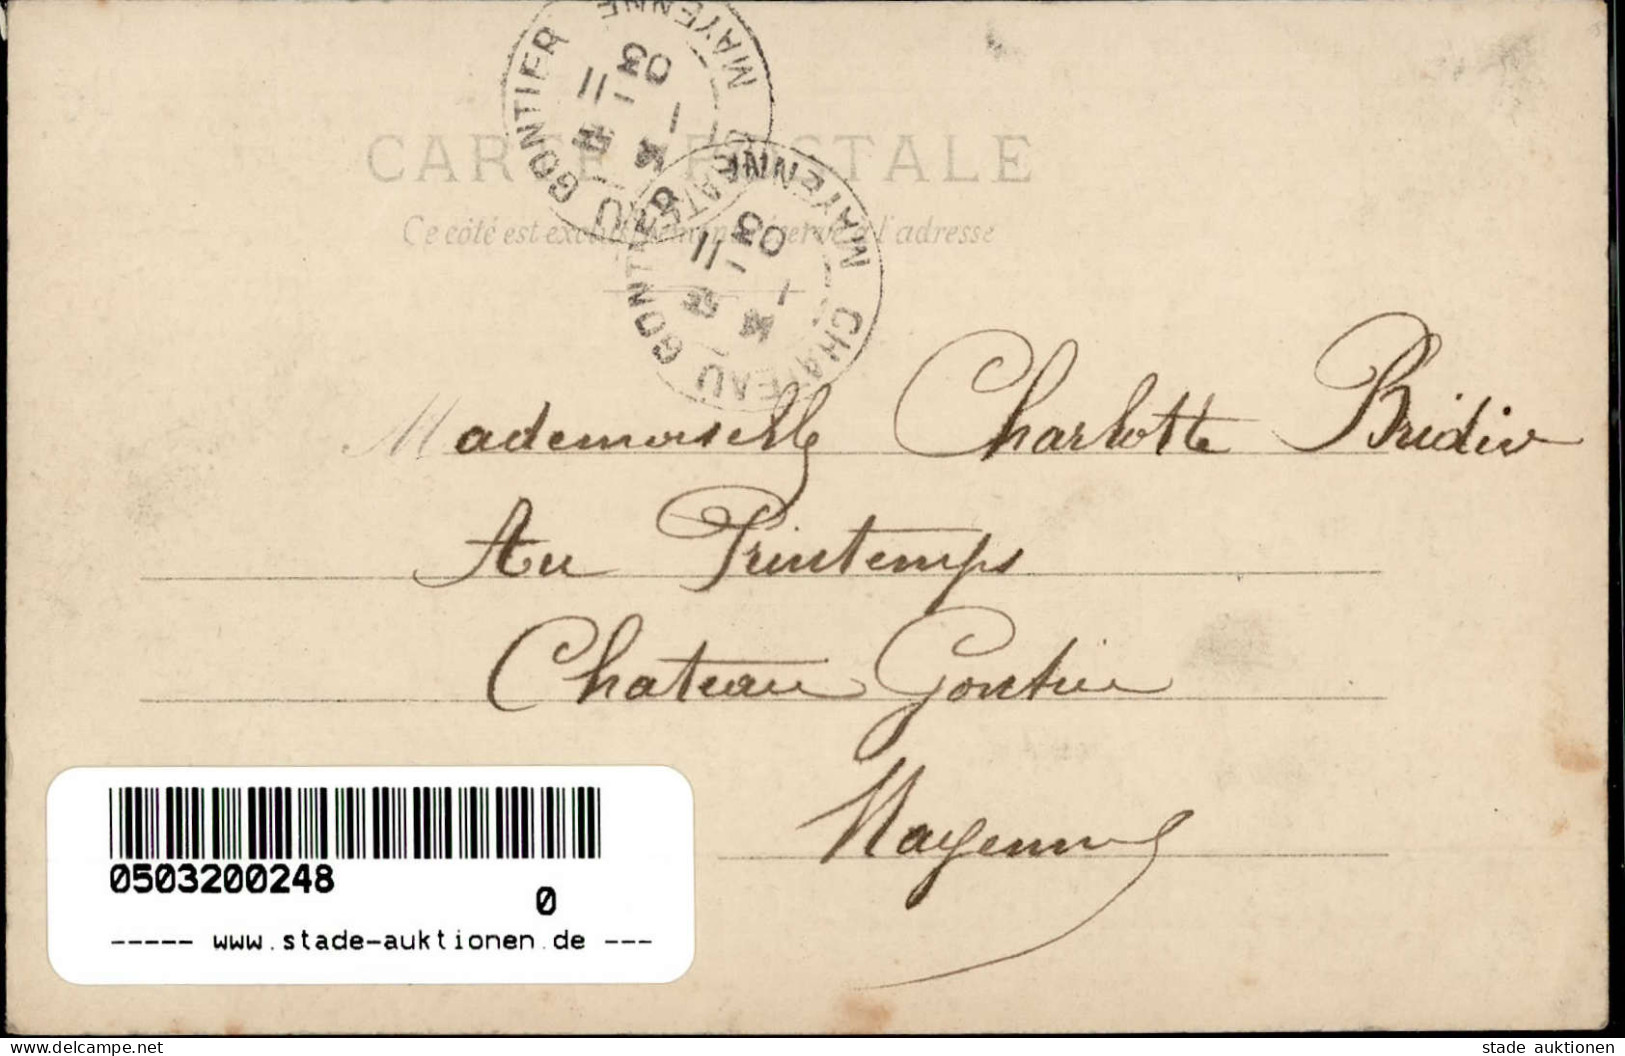 CARTE POSTALE
Ce côté est exclusivement réservé à l'adresse
CHATEAU GONTIER MAYENNE
11 03
CHATEAU GONTIER MAYENNE
11 03
Mademoiselle Charlotte
Au Printemps
Chateau Gontier
Mayenne
0503200248
0
----- www.stade-auktionen.de ---
www.delcampe.net
stade auktionen